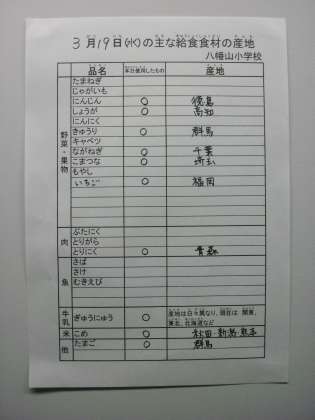 3月19日(水)の主な給食食材の産地
八幡山小学校
品名 本日使用したもの 産地
野菜・果物
たまねぎ
じゃがいも
にんじん ○ 徳島
しょうが ○ 高知
にんにく
きゅうり ○ 群馬
キャベツ
ながねぎ ○ 千葉
こまつな ○ 埼玉
もやし
いちご ○ 福岡
肉
ぶたにく
とりがら
とりにく ○ 青森
魚
さば
さけ
むきえび
牛乳 ぎゅうにゅう ○ 産地は日々異なり、現在は、関東、
東北、北海道など
米 こめ ○ 秋田・新潟・岩手
他 たまご ○ 群馬